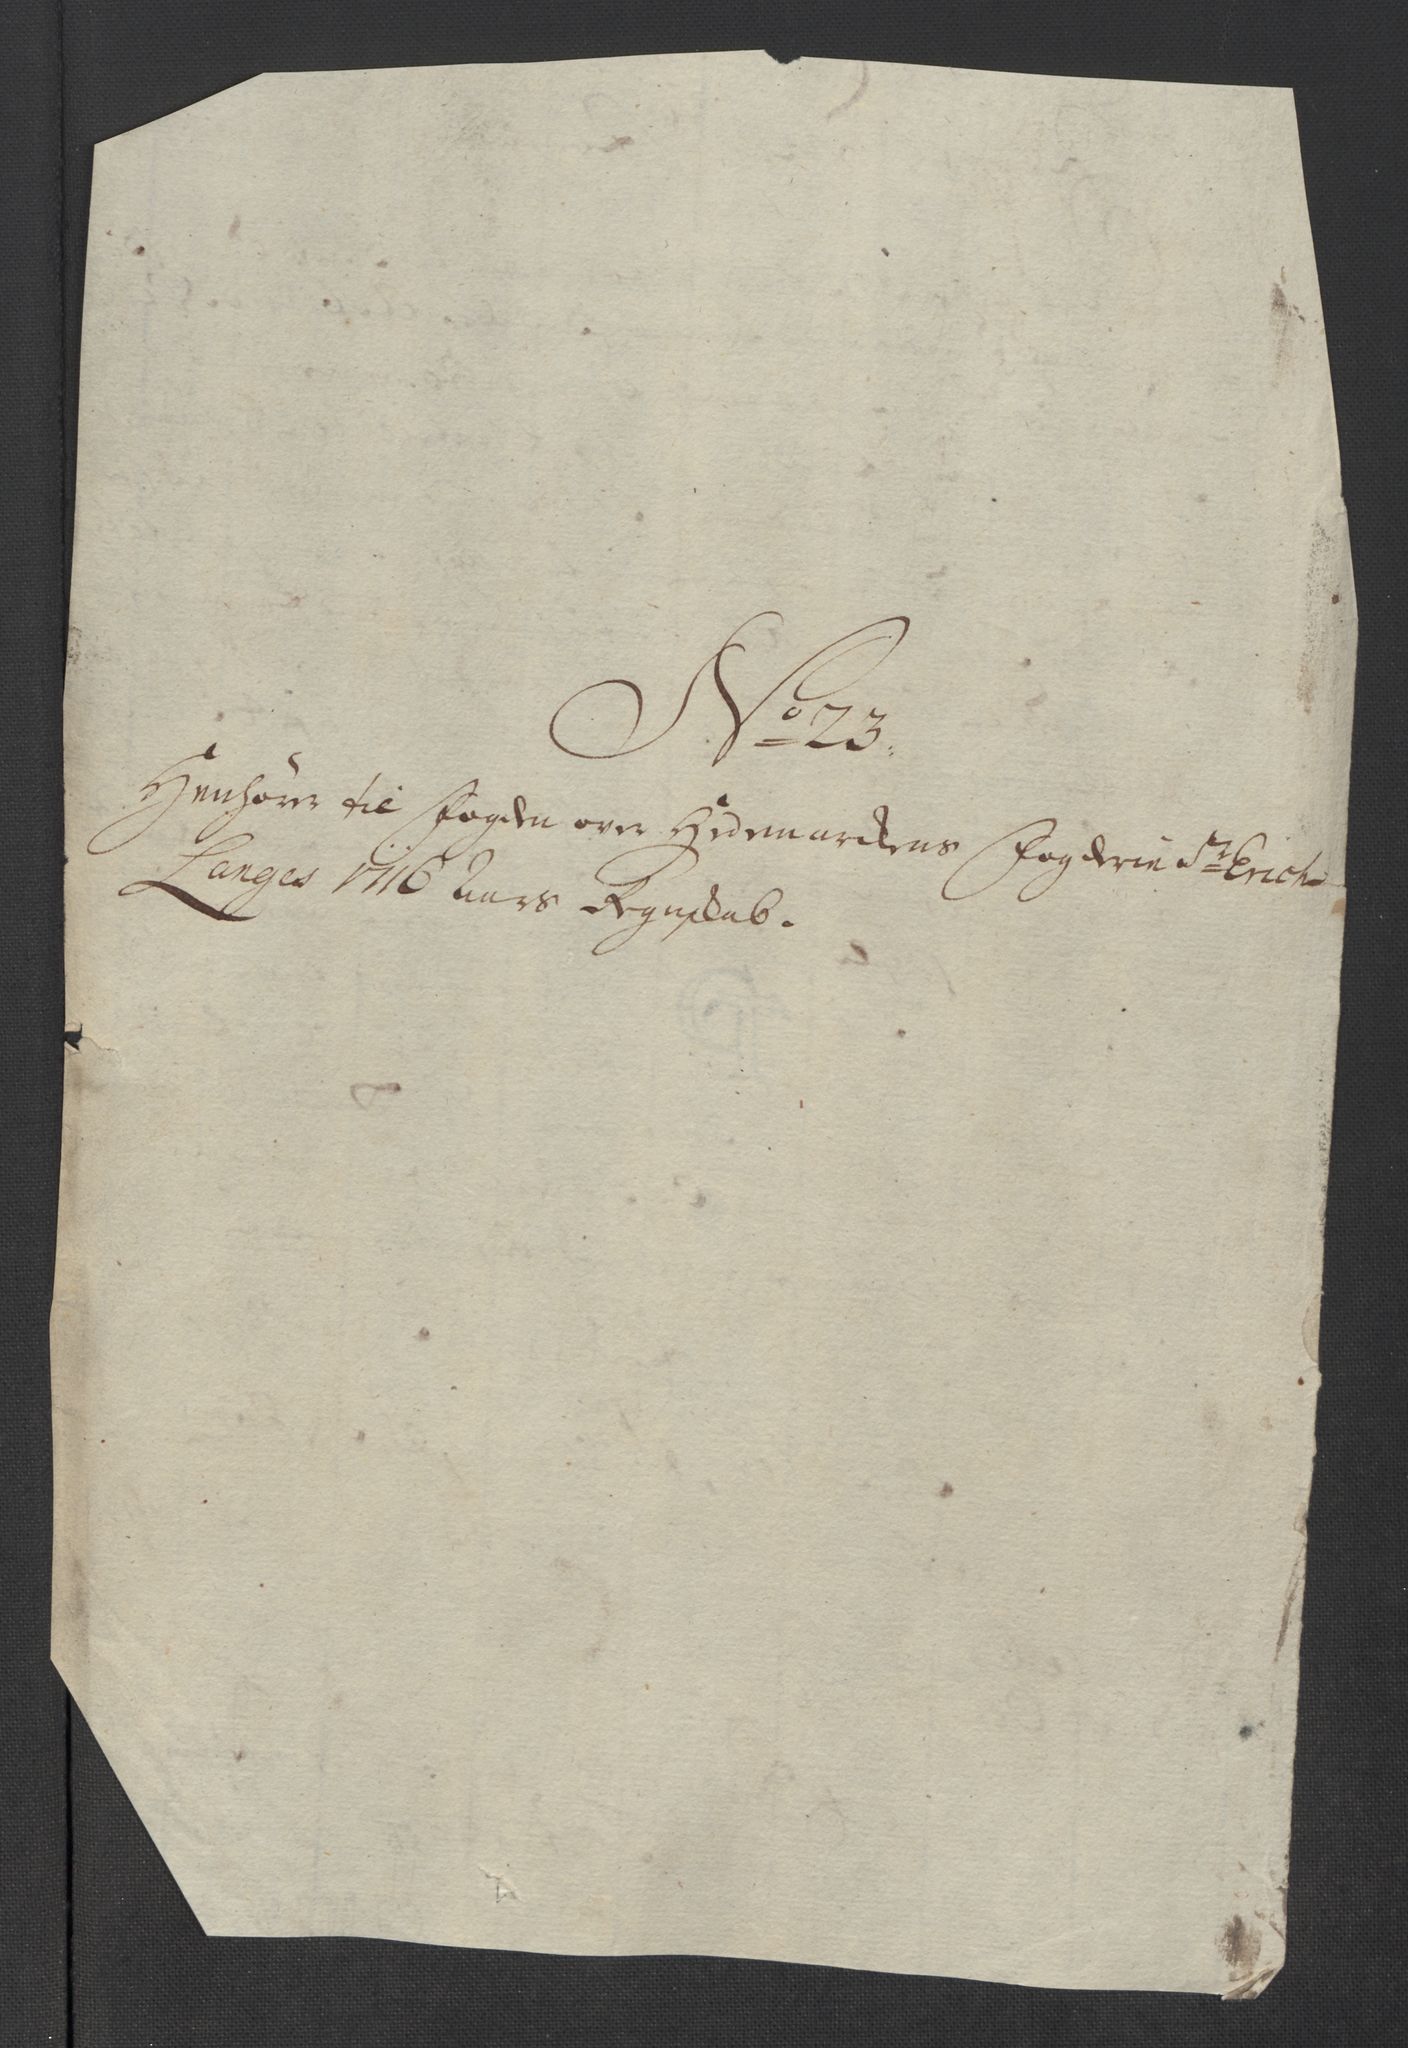 No 23.
Henhörer til Fogden over Hedemarckens Fogderie Sr Erich
Langes 1716 Aars Regnskab.